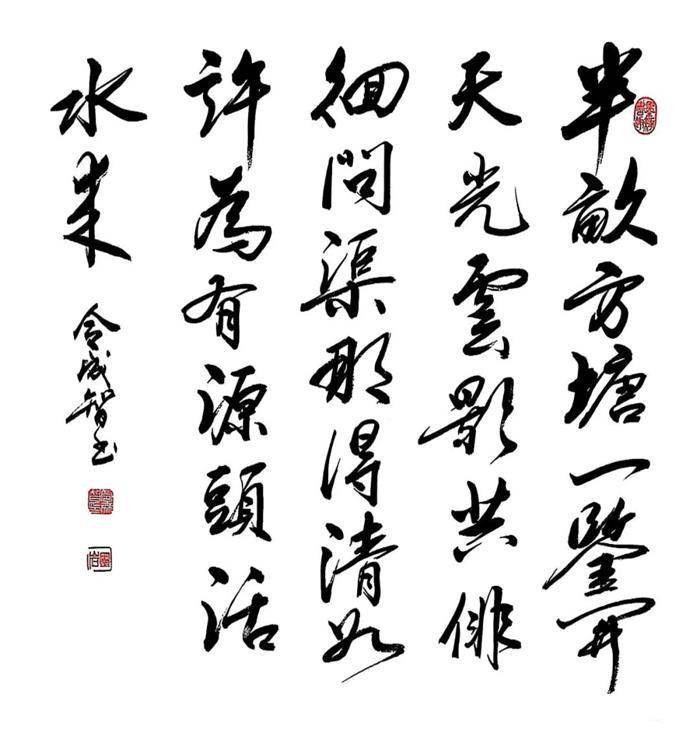 半畝方塘一鑒開
天光雲影共俳
徊問渠那得清如
許為有源頭活
水來
令成智书